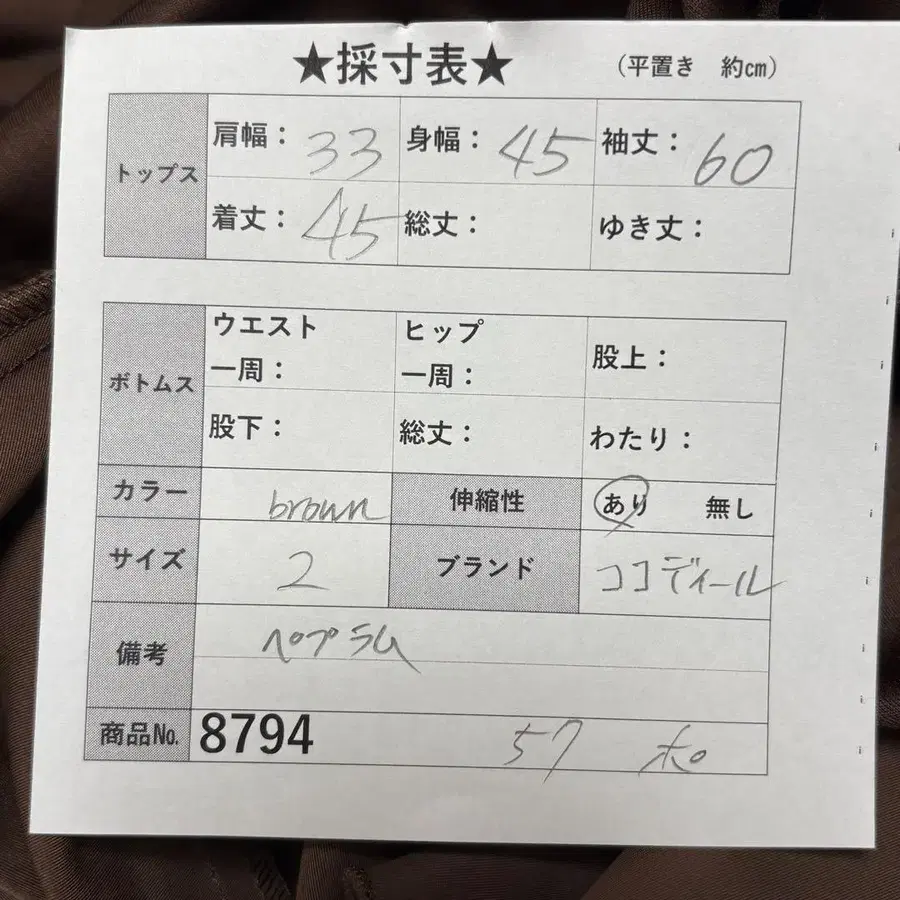 ★採寸表★ (平置き 約㎝)
トップス
肩幅： 33 身幅： 45 袖丈： 60
着丈： 45 総丈： ゆき丈：
ボトムス
ウエスト一周： ヒップ一周： 股上：
股下： 総丈： わたり：
カラー brown 伸縮性 あり 無し
サイズ 2 ブランド ココディール
備考 ペプラム
商品No. 8794 57 ポ